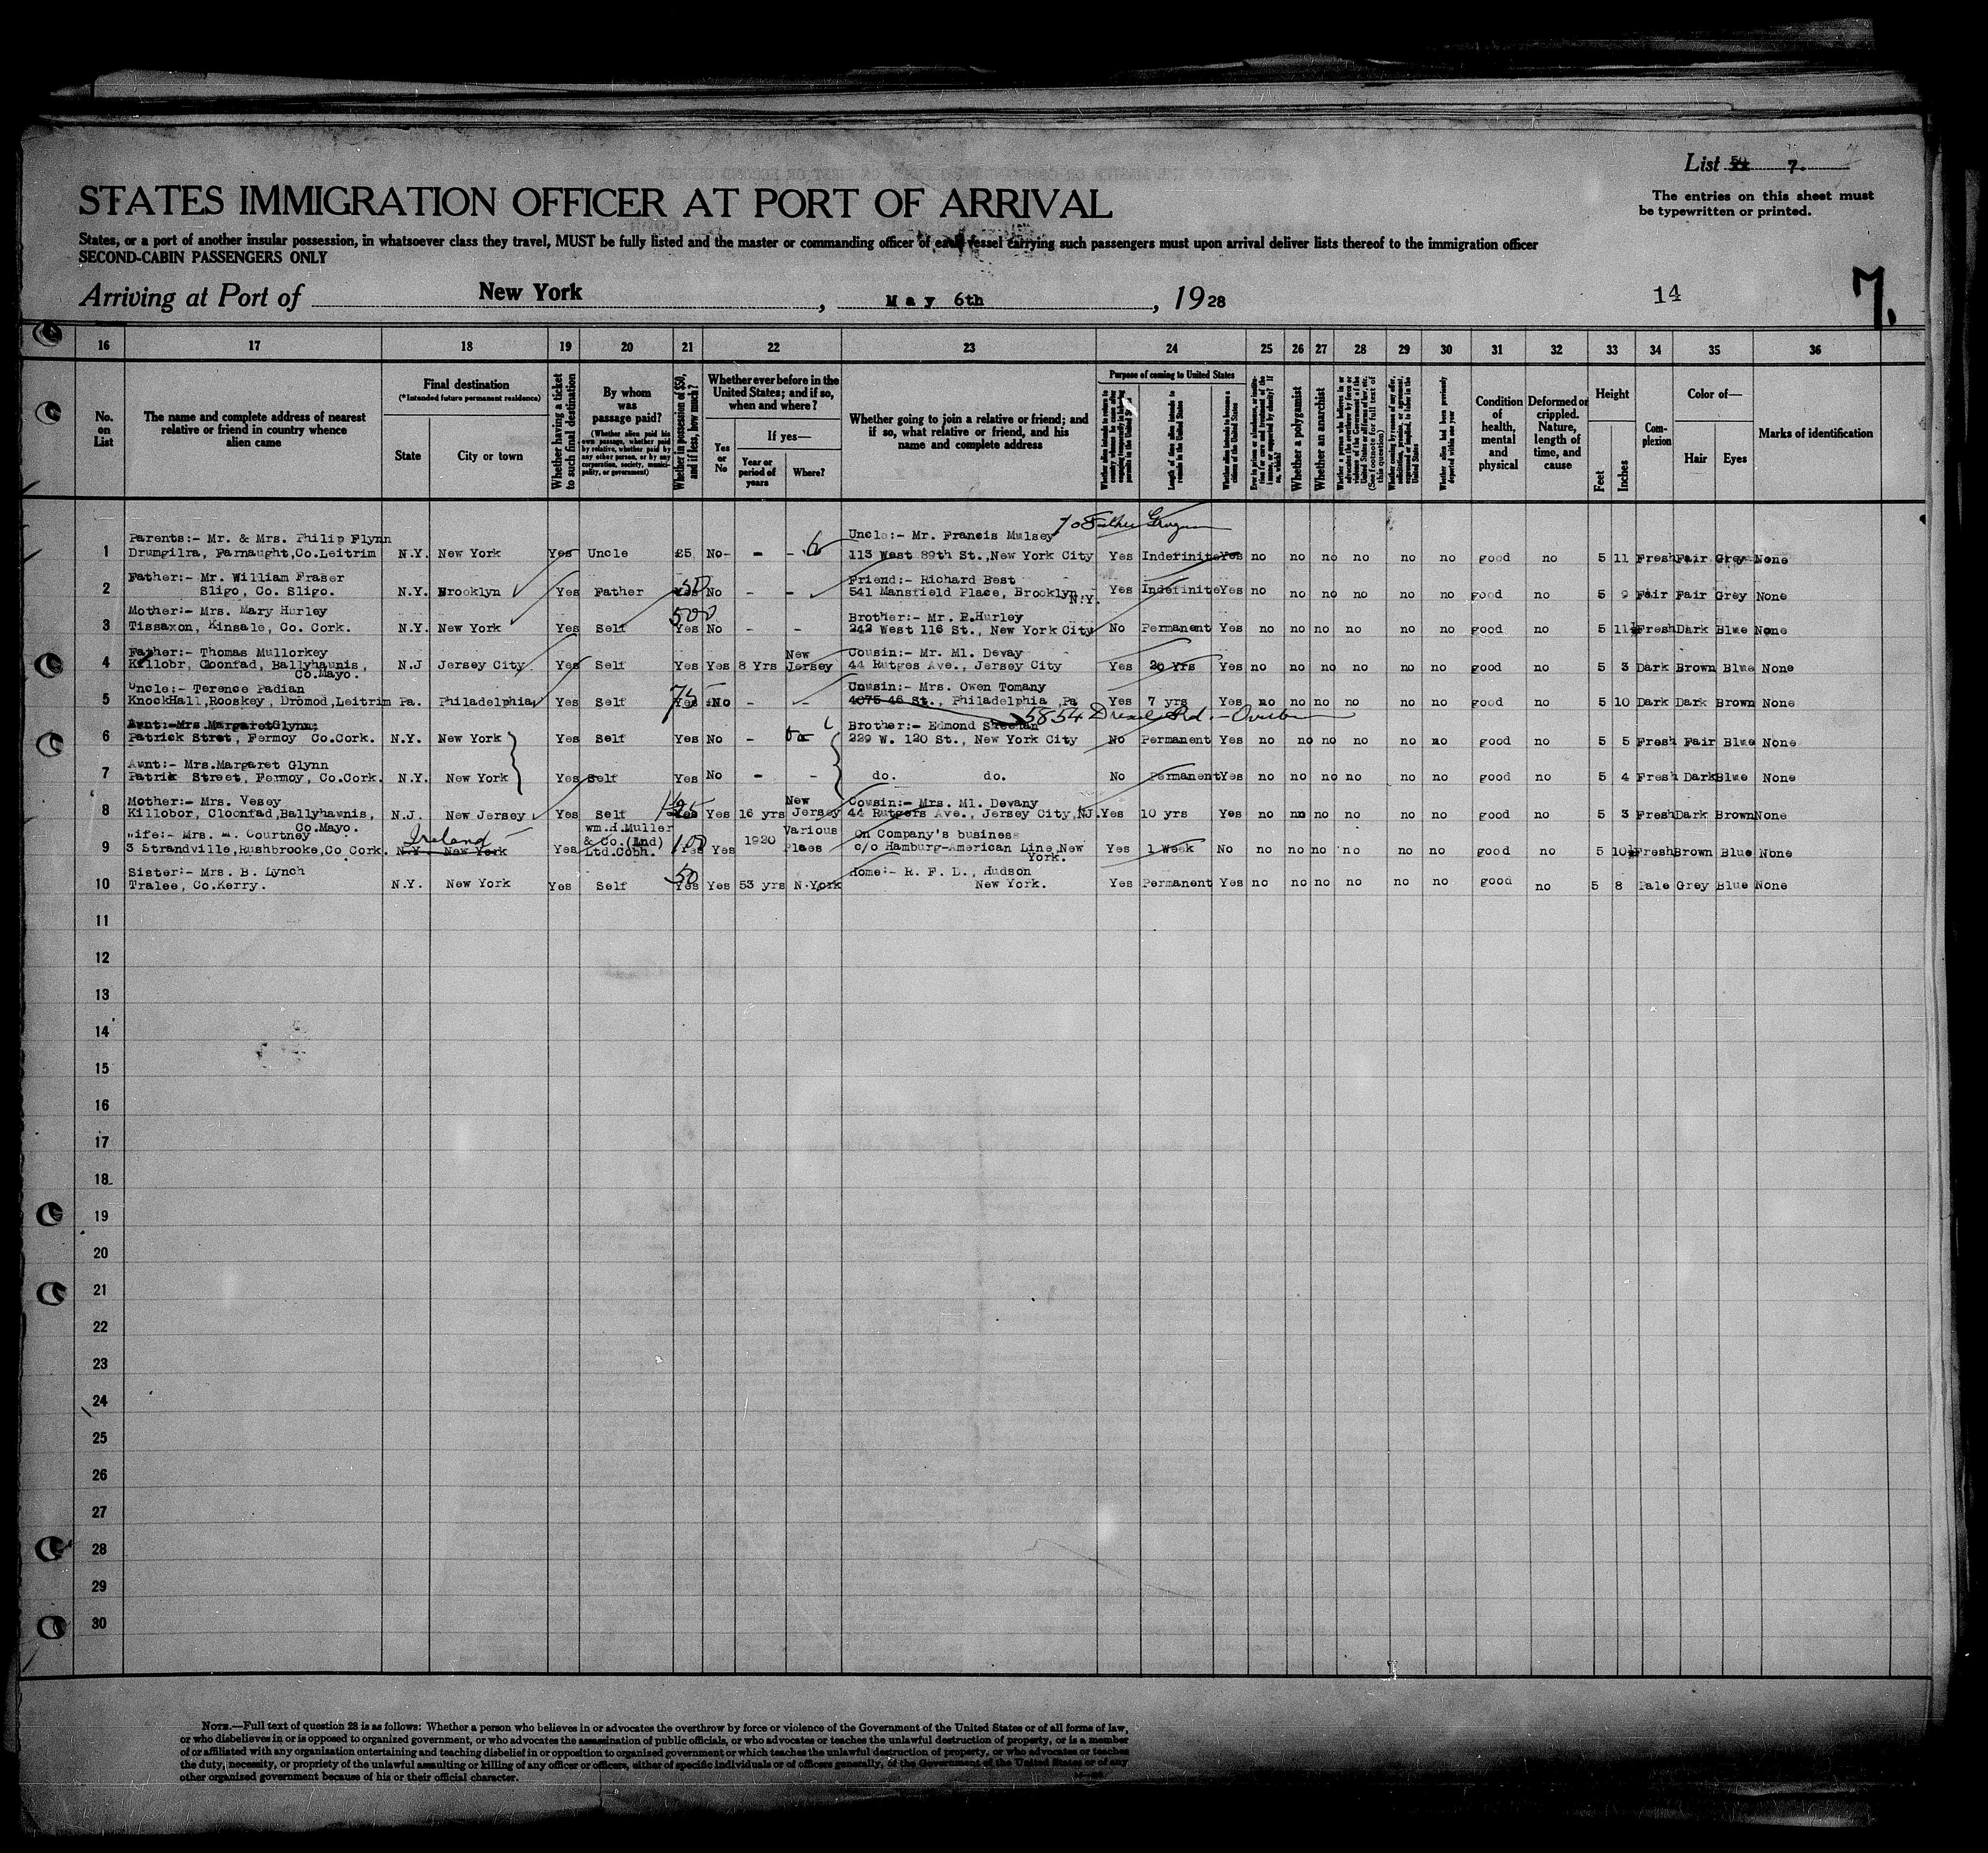 List 7.
STATES IMMIGRATION OFFICER AT PORT OF ARRIVAL
The entries on this sheet must
be typewritten or printed.
States, or a port of another insular possession, in whatsoever class they travel, MUST be fully listed and the master or commanding officer of each vessel carrying such passengers must upon arrival deliver lists thereof to the immigration officer
SECOND-CABIN PASSENGERS ONLY
Arriving at Port of New York, May 6th, 1928
14
7.
16 17 18 19 20 21 22 23 24 25 26 27 28 29 30 31 32 33 34 35 36
No. on List
The name and complete address of nearest relative or friend in country whence alien came
Final destination
(*Intended future permanent residence)
State
City or town
Whether having a ticket to such final destination
By whom was passage paid?
(Whether alien paid his own passage, whether paid by relative, whether paid by any other person, or by any corporation, society, municipality, or government)
Whether in possession of $50, and if less, how much?
Whether ever before in the United States; and if so, when and where?
Yes or No
If yes—
Year or period of years
Where?
Whether going to join a relative or friend; and if so, what relative or friend, and his name and complete address
Purpose of coming to United States
Length of time alien intends to remain in the United States
Whether alien intends to become a citizen of the United States
Whether a polygamist
Whether an anarchist
Whether alien had been previously deported within one year
Condition of health, mental and physical
Deformed or crippled. Nature, length of time, and cause
Height
Feet
Inches
Complexion
Color of—
Hair
Eyes
Marks of identification
To Father
Parents:- Mr. & Mrs. Philip Flynn Uncle:- Mr. Francis Mulsey
1 Drumgilra, Farnaught,Co.Leitrim N.Y. New York Yes Uncle £5 No- - - 113 West 89th St.,New York City Yes Indefinite Yes no no no no no no good no 5 11 Fresh Fair Grey None
Father:- Mr. William Fraser 50 Friend:- Richard Best
2 Sligo, Co. Sligo. N.Y. Brooklyn Yes Father Yes No - - 541 Mansfield Place, Brooklyn N.Y. Yes Indefinite Yes no no no no no no good no 5 9 Fair Fair Grey None
Mother:- Mrs. Mary Hurley 500 Brother:- Mr. P.Hurley
3 Tissaxon, Kinsale, Co. Cork. N.Y. New York Yes Self Yes No - - 242 West 116 St., New York City No Permanent Yes no no no no no no good no 5 11½ Fresh Dark Blue None
Father:- Thomas Mullorkey New Cousin:- Mr. Ml. Devay
4 Killobr, Cloonfad, Ballyhaunis, N.J Jersey City Yes Self Yes Yes 8 Yrs Jersey 44 Rutges Ave., Jersey City Yes 20 Yrs Yes no no no no no no good no 5 3 Dark Brown Blue None
Co.Mayo.
Uncle:- Terence Padian 75 Cousin:- Mrs. Owen Tomany
5 KnockHall,Rooskey, Dromod,Leitrim Pa. Philadelphia Yes Self Yes No - - 4075 46 St., Philadelphia ,Pa Yes 7 yrs Yes no no no no no no good no 5 10 Dark Dark Brown None
5854 Drexel Rd. -
Aunt:-Mrs.MargaretGlynn; Brother:- Edmond Sheehan
6 Patrick Stret, Fermoy Co.Cork. N.Y. New York Yes Self Yes No - 229 W. 120 St., New York City No Permanent Yes no no no no no no good no 5 5 Fresh Fair Blue None
Aunt:- Mrs.Margaret Glynn
7 Patrik Street, Fermoy, Co.Cork. N.Y. New York Yes Self Yes No - - do. do. No Permanent Yes no no no no no no good no 5 4 Fresh Dark Blue None
Mother:- Mrs. Vesey New Cousin:- Mrs. Ml. Devany
8 Killobor, Cloonfad,Ballyhaunis, N.J. New Jersey Yes Self Yes Yes 16 yrs Jersey 44 Rutgers Ave., Jersey City,NJ. Yes 10 yrs Yes no no no no no no good no 5 3 Fresh Dark Brown None
Co.Mayo.
Wife:- Mrs. M. Courtney Ireland Wm.H.Muller & Co.(Lnd) 100 1920 Various On Company's business
9 3 Strandville,Rushbrooke,Co Cork. N.Y. New York Yes Ltd.Cobh. Yes Yes Plaes c/o Hamburg-American Line,New York. Yes 1 Week No no no no no no no good no 5 10½ Fresh Brown Blue None
Sister:- Mrs. B. Lynch 50 Home:- R. F. D., Hudson
10 Tralee, Co.Kerry. N.Y. New York Yes Self Yes Yes 53 yrs N.York New York. Yes Permanent Yes no no no no no no good no 5 8 Pale Grey Blue None
11
12
13
14
15
16
17
18
19
20
21
22
23
24
25
26
27
28
29
30
NOTE.—Full text of question 28 is as follows: Whether a person who believes in or advocates the overthrow by force or violence of the Government of the United States or of all forms of law,
or who disbelieves in or is opposed to organized government, or who advocates the assassination of public officials, or who advocates or teaches the unlawful destruction of property, or is a member
of or affiliated with any organization entertaining and teaching disbelief in or opposition to organized government or which teaches the unlawful destruction of property, or who advocates or teaches
the duty, necessity, or propriety of the unlawful assaulting or killing of any officer or officers, either of specific individuals or of officers generally, of the Government of the United States or of any
other organized government because of his or their official character.